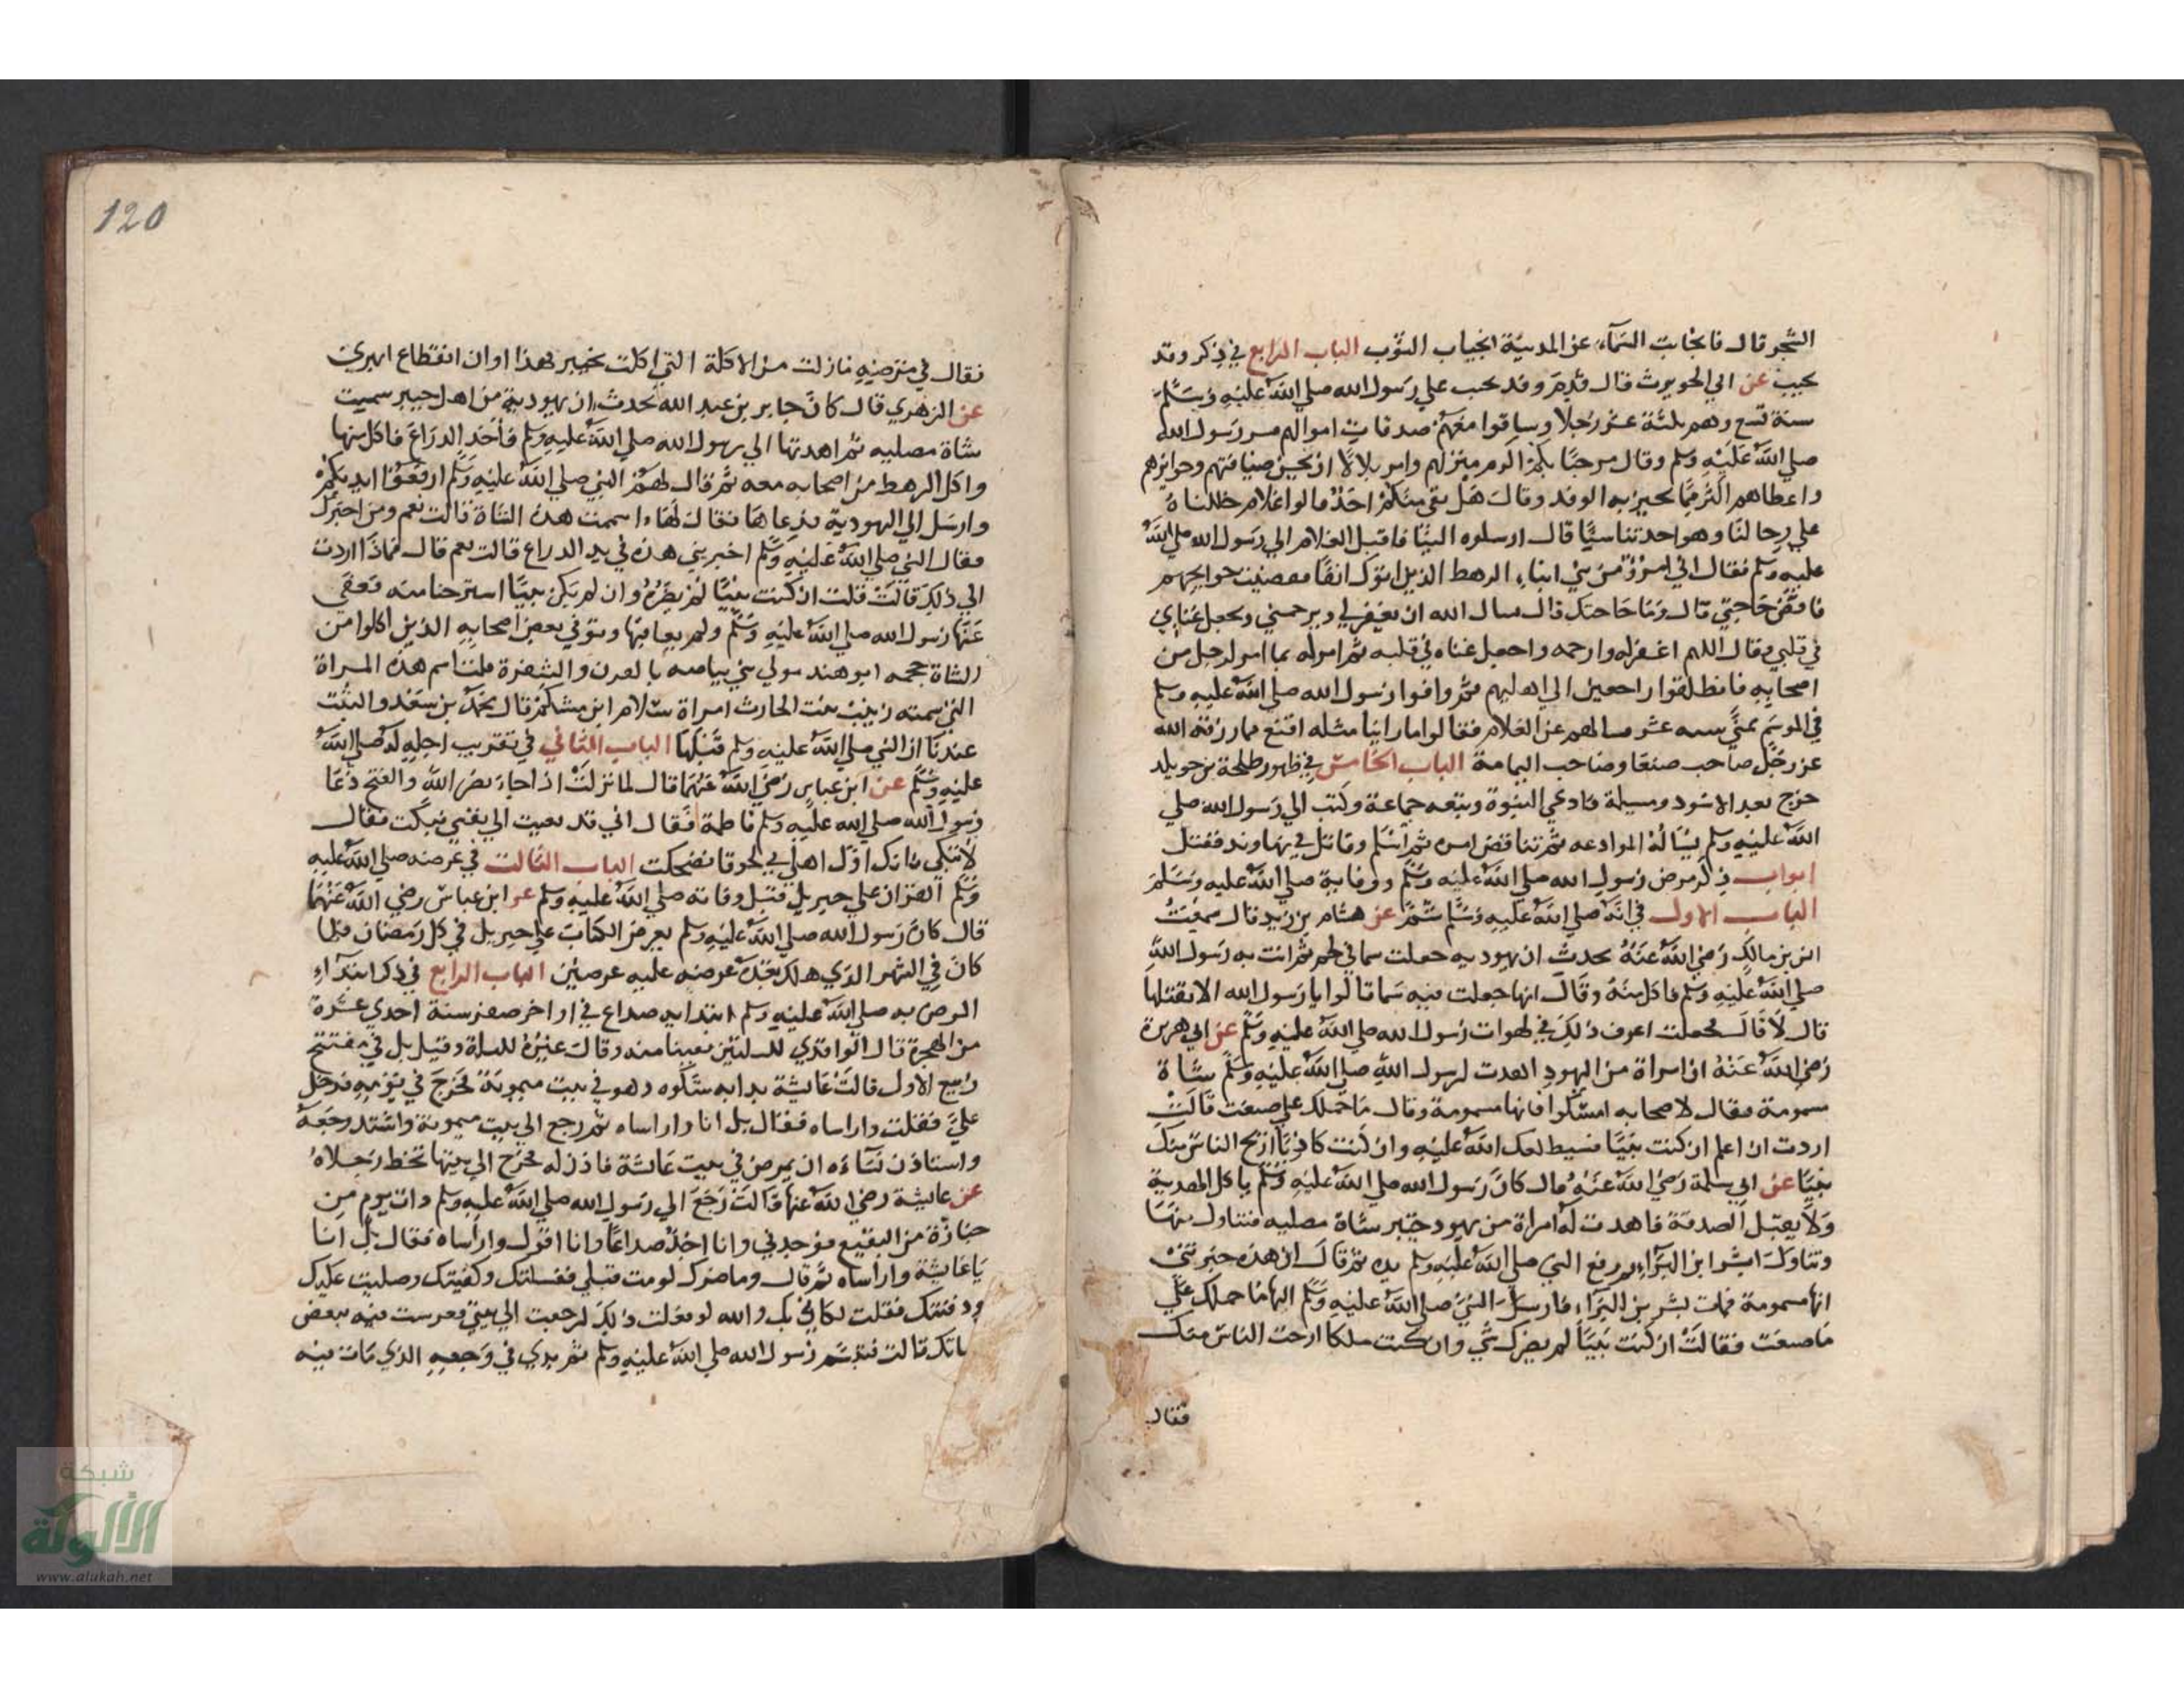 الشجر قال فانجابت السماء عن المدينة انجياب الثوب الباب الرابع في ذكر وفد
تجيب عن ابي الحويرث قال قدم وفد تجيب علي رسول الله صلي الله عليه وسلم
سنة تسع وهم ثلثة عشر رجلا وساقوا معهم صدقات اموالهم فسر رسول الله
صلي الله عليه وسلم وقال مرحبا بكم اكرم منزلهم وامر بلالا ان يحسن ضيافتهم وجوايزهم
واعطاهم اكثر مما يجيز به الوفد وقال هل بقي منكم احد قالوا غلام خلفناه
علي رحالنا وهو احدثنا سنا قال ارسلوه الينا فاقبل الغلام الي رسول الله صلي الله
عليه وسلم فقال اني امرؤ من بني ابناء الرهط الذين اتوك انفا فقضيت حوايجهم
فاقض حاجتي قال وما حاجتك قال تسال الله ان يغفر لي ويرحمني ويجعل غناي
في قلبي فقال اللهم اغفر له وارحمه واجعل غناه في قلبه ثم امر له بما امر لرجل من
اصحابه فانطلقوا راجعين الي اهليهم ثم وافوا رسول الله صلي الله عليه وسلم
في الموسم بمني سنة عشر فسالهم عن الغلام فقالوا ما راينا مثله اقنع بما رزقه الله
عز وجل صاحب صنعا وصاحب اليمامة الباب الخامس في ظهور طلحة بن خويلد
خرج بعد الاسود ومسيلمة فادعي النبوة وتبعه جماعة وكتب الي رسول الله صلي
الله عليه وسلم يساله الموادعه ثم تناقض امره ثم اسلم وقاتل في نهاوند فقتل
ابواب ذكر مرض رسول الله صلي الله عليه وسلم ووفاية صلي الله عليه وسلم
الباب الاول في انه صلي الله عليه وسلم سم عن هشام بن زيد قال سمعت
انس بن مالك رضي الله عنه يحدث ان يهوديه جعلت سما في لحم ثم اتت به رسول الله
صلي الله عليه وسلم فاكل منه وقال انها جعلت فيه سما قالوا يا رسول الله الا نقتلها
قال لا قال فجعلت اعرف ذلك في لهوات رسول الله صلي الله عليه وسلم عن ابي هريرة
رضي الله عنه ان امراة من اليهود اهدت لرسول الله صلي الله عليه وسلم شاة
مسمومة فقال لاصحابه امسكوا فانها مسمومة وقال ما حملك علي ما صنعت قالت
اردت ان اعلم ان كنت نبيا فسيطلعك الله عليه وان كنت كاذبا اريح الناس منك
نبيا عن ابي سلمة رضي الله عنه قال كان رسول الله صلي الله عليه وسلم ياكل الهدية
ولا يقبل الصدقة فاهدت له امراة من يهود خيبر شاة مصليه فتناول منها
وتناول بشر ابن البراء ثم رفع النبي صلي الله عليه وسلم يده ثم قال ان هذه خبرتني
انها مسمومة فمات بشر بن البراء فارسل النبي صلي الله عليه وسلم اليها ما حملك علي
ما صنعت فقالت ان كنت نبيا لم يضرك شي وان كنت ملكا ارحت الناس منك
فقال
120
فقال في مرضه ما زلت من الاكلة التي اكلت بخيبر فهذا اوان انقطاع ابهري
عن الزهري قال كان جابر بن عبد الله يحدث ان يهودية من اهل خيبر سميت
شاة مصليه ثم اهدتها الي رسول الله صلي الله عليه وسلم فاخذ الدراع فاكل منها
واكل الرهط من اصحابه معه ثم قال لهم النبي صلي الله عليه وسلم ارفعوا ايديكم
وارسل الي اليهودية فدعاها فقال لها اسممت هذه الشاة قالت نعم ومن اخبرك
فقال النبي صلي الله عليه وسلم اخبرتني هذه في يدي الدراع قالت نعم قال فماذا اردت
الي ذلك قالت قلت ان كنت نبيا لم يضره وان لم يكن نبيا استرحنا منه فعفي
عنها رسول الله صلي الله عليه وسلم ولم يعاقبها وتوفي بعض اصحابه الذين اكلوا من
الشاة حجمه ابو هند مولي بني بياضه بالقرن والشفرة قلت اسم هذه المراة
التي سمته زينب بنت الحارث امراة سلام ابن مشكم قال محمد بن سعد والثبت
عندنا ان النبي صلي الله عليه وسلم قتلها الباب الثاني في تقريب اجله له صلي الله
عليه وسلم عن ابن عباس رضي الله عنهما قال لما نزلت اذا جاء نصر الله والفتح دعا
رسول الله صلي الله عليه وسلم فاطمة فقال اني قد نعيت الي نفسي فبكت فقال
لا تبكي فانك اول اهلي بي لحوقا فضحكت الباب الثالث في عرضه صلي الله عليه
وسلم القران علي جبريل قبل وفاته صلي الله عليه وسلم عن ابن عباس رضي الله عنهما
قال كان رسول الله صلي الله عليه وسلم يعرض الكتاب علي جبريل في كل رمضان فلما
كان في الشهر الذي هلك بعده عرضه عليه عرضتين الباب الرابع في ذكر ابتداء
المرض به صلي الله عليه وسلم ابتدا به صداع في اواخر صفر سنة احدي عشرة
من الهجرة قال الواقدي لليلتين بقيتا منه وقال غيره لليلة وقيل بل في مفتتح
ربيع الاول قالت عايشة بدا به شكوه وهو في بيت ميمونة فخرج في يومه فدخل
علي فقلت واراساه فقال بل انا واراساه ثم رجع الي بيت ميمونة واشتد وجعه
واستاذن نساءه ان يمرض في بيت عائشة فاذن له فخرج الي بيتها تخط رجلاه
عن عايشة رضي الله عنها قالت رجع الي رسول الله صلي الله عليه وسلم ذات يوم من
جنازة من البقيع فوجدني وانا اجد صداعا وانا اقول واراساه فقال بل انا
يا عايشة واراساه ثم قال وما ضرك لو مت قبلي فغسلتك وكفنتك وصليت عليك
ودفنتك فقلت لكاني بك والله لو فعلت ذلك لرجعت الي بيتي فعرست فيه ببعض
سائك قالت فتبسم رسول الله صلي الله عليه وسلم ثم بدي في وجعه الذي مات فيه
شبكة
الألوكة
www.alukah.net